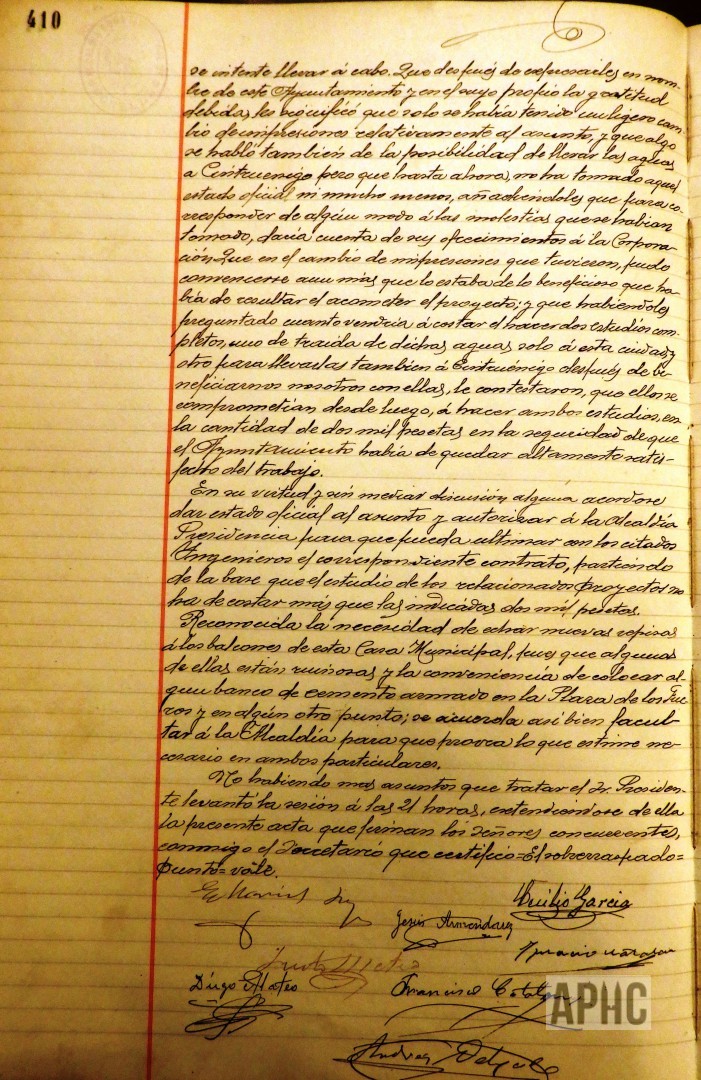 410
se intente llevar á cabo. Que después de expresarles en nom-
bre de este Ayuntamiento y en el suyo propio la gratitud
debida, les significó que solo se había tenido un ligero cam-
bio de impresiones relativamente al asunto, y que algo
se habló también de la posibilidad de llevar las aguas
a Cintruénigo pero que hasta ahora, no ha tomado aquel
estado oficial ni mucho menos, añadiendoles que para co-
rresponder de algún modo á las molestias que se habían
tomado, daría cuenta de sus ofrecimientos á la Corpora-
ción. Que en el cambio de impresiones que tuvieron, pudo
convencerse aun más que lo estaba de lo beneficioso que ha-
bía de resultar el acometer el proyecto; y que habiendoles
preguntado cuanto vendría á costar el hacer dos estudios com-
pletos, uno de traida de dichas aguas solo á esta ciudad, y
otro para llevarlas también á Cintruénigo después de be-
neficiarnos nosotros con ellas, le contestaron, que ellos se
comprometían desde luego, á hacer ambos estudios, en
la cantidad de dos mil pesetas en la seguridad de que
el Ayuntamiento había de quedar altamente satis-
fecho del trabajo.
En su virtud y sin mediar discusión alguna acordose
dar estado oficial al asunto y autorizar á la Alcaldía
Presidencia para que pueda ultimar con los citados
Ingenieros el correspondiente contrato, partiendo
de la base que el estudio de los relacionados proyectos no
ha de costar más que las indicadas dos mil pesetas.
Reconocida la necesidad de echar nuevas repisas
á los balcones de esta Casa Municipal, pues que algunas
de ellas están ruinosas y la conveniencia de colocar al-
gun banco de cemento armado en la Plaza de los Fue-
ros y en algún otro punto; se acuerda asi bien facul-
tar á la Alcaldía para que provea lo que estime ne-
cesario en ambos particulares.
No habiendo mas asuntos que tratar el Sr. Presiden-
te levantó la sesión á las 21 horas, extendiendose de ella
la presente acta que firman los señores concurrentes,
conmigo el Secretario que certifico=El sobrerraspado=
punto=vale.
Emilio Garcia
Jesús Armendariz
Justo Mateo
Diego Mateo
Francisco Catalan
Andres Delgado
APHC